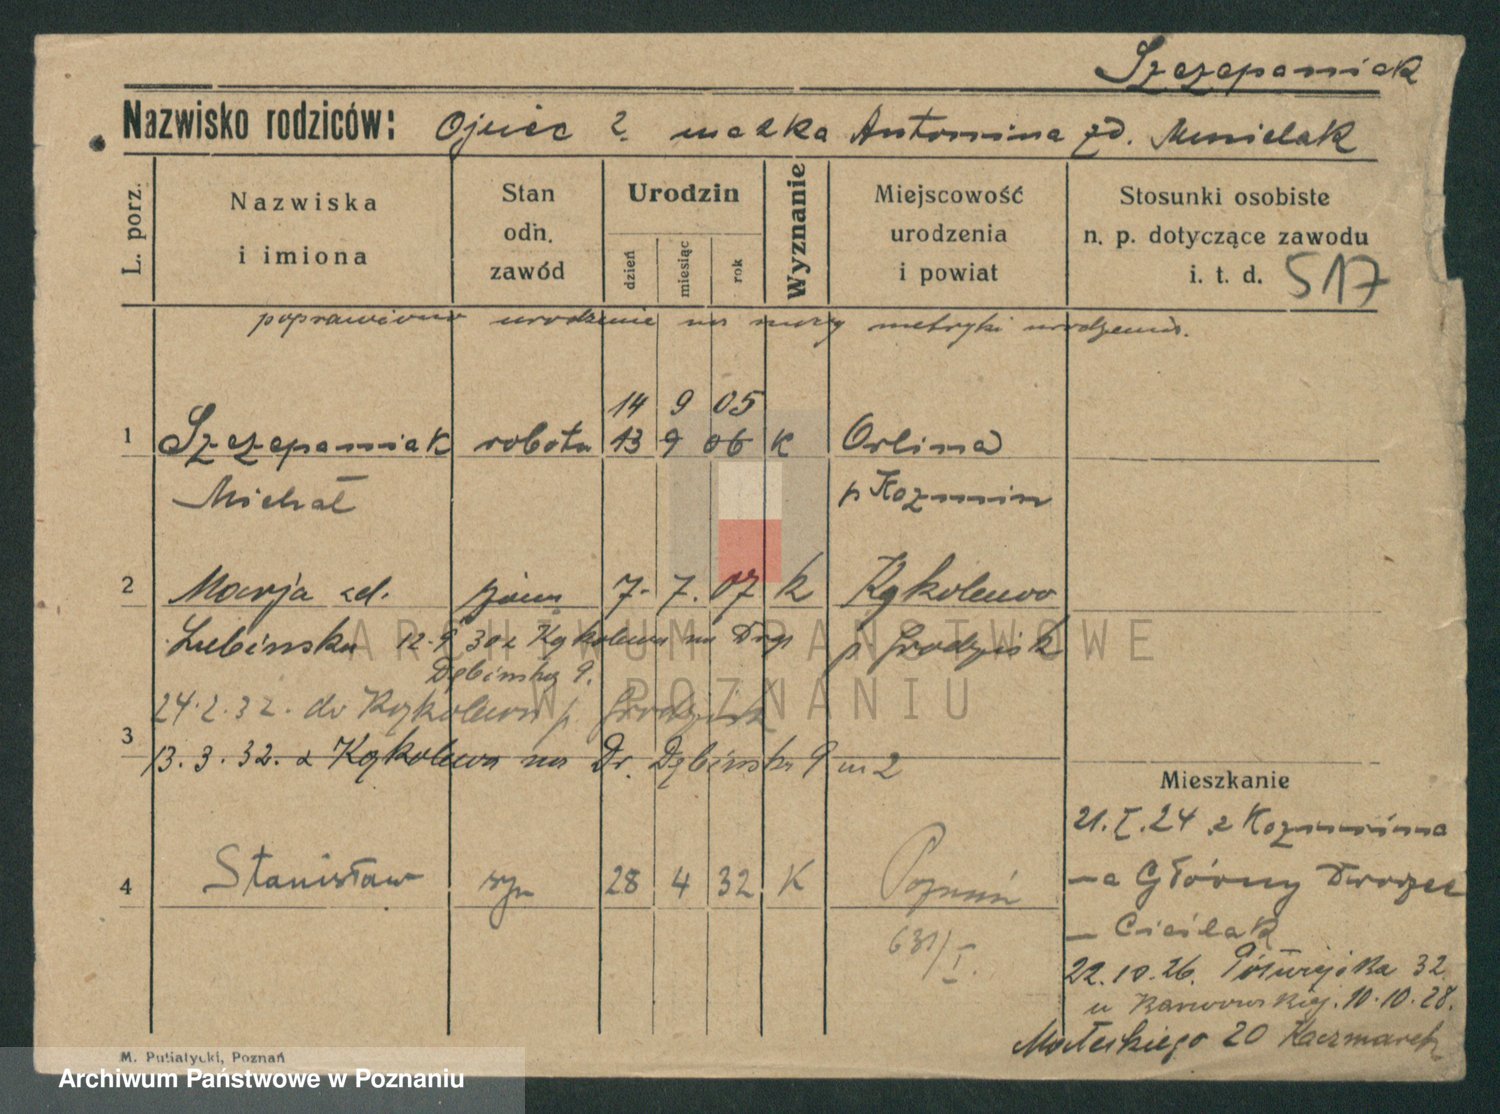 Szczepaniak
Nazwisko rodziców: Ojciec ? matka Antonina zd. Musielak
L. porz.
Nazwiska i imiona
Stan odn. zawód
Urodzin
dzień
miesiąc
rok
Wyznanie
Miejscowość urodzenia i powiat
Stosunki osobiste n. p. dotyczące zawodu i. t. d.
517
poprawiono urodzenie na mocy metryki urodzenia.
14 9 05
1 Szczepaniak robotn 13 9 06 K Orlina
Michał p Kozmin
2 Marja zd. żona 7. 7. 07 K Kąkolewo
Lubińska 12.9 30 z Kąkolewa na Drog p Grodzisk
Dębińską 9.
24.2.32. do Kąkolewa p. Grodzisk
3
13.3.32. z Kąkolewa na Dr. Dębińska 9 m 2
Mieszkanie
21.I.24 z Kozmina
4 Stanisław syn 28 4 32 K Poznań
Główny Dworzec
631/I.
Cieślak
22.10.26. Półwiejska 32
u 10.10.28.
Małeckiego 20 Kaczmarek
M. Putiatycki, Poznań
ARCHIWUM PAŃSTWOWE
W POZNANIU
Archiwum Państwowe w Poznaniu